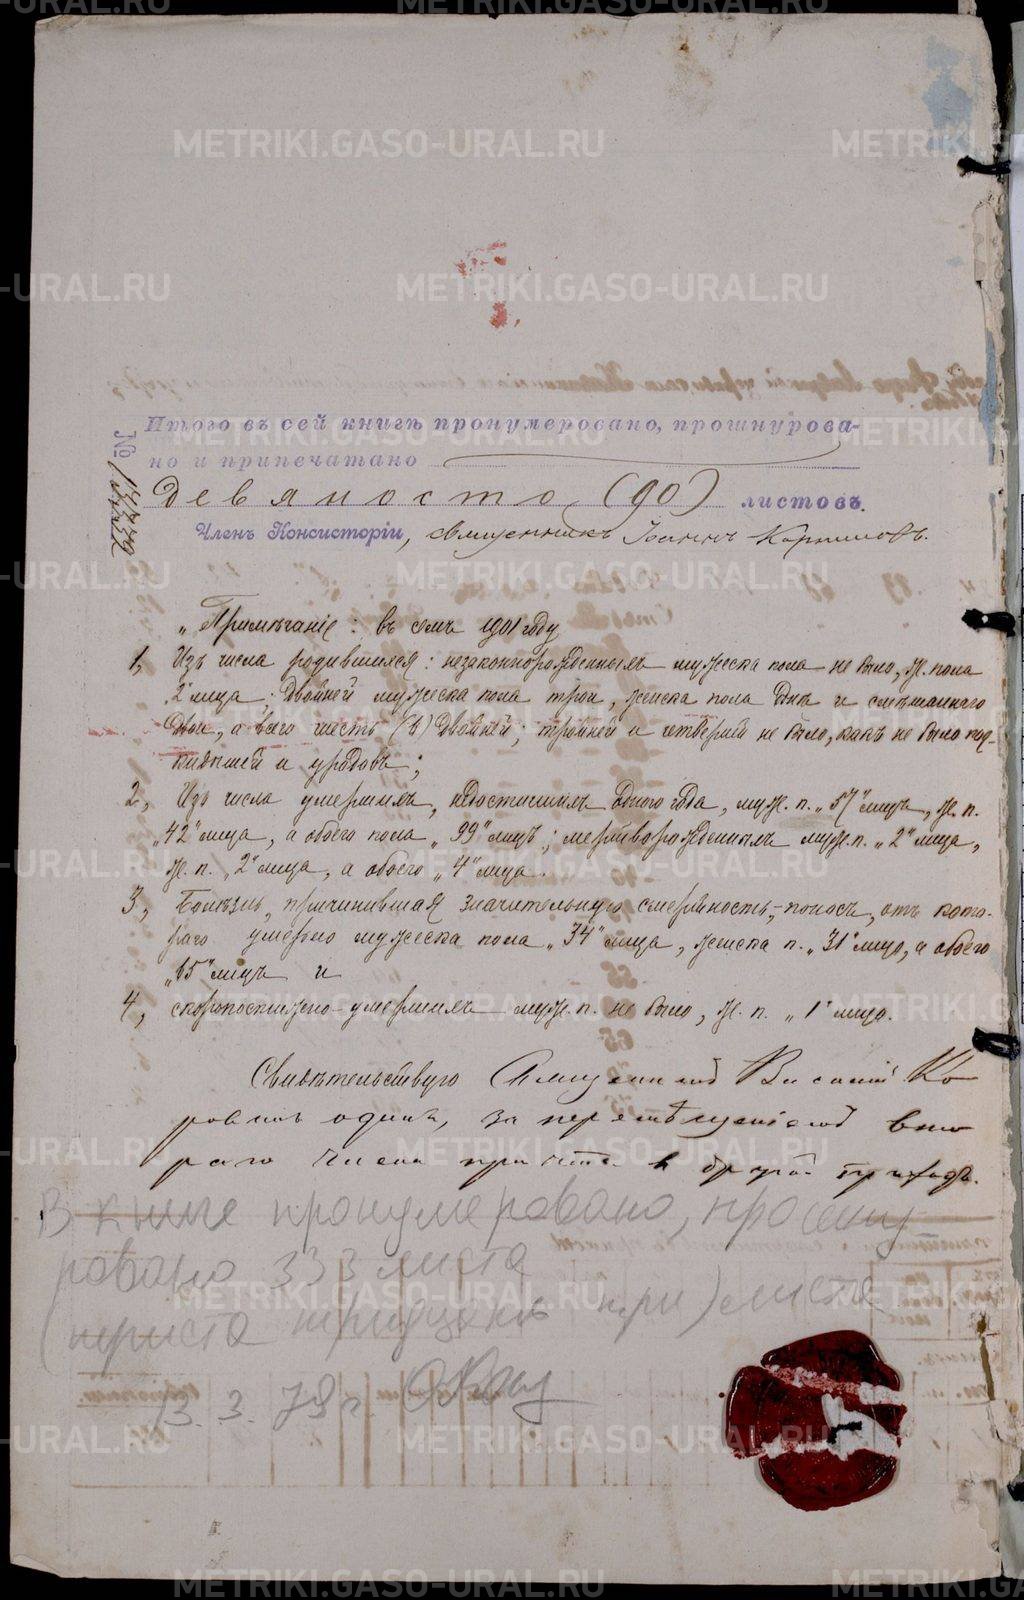 Итого въ сей книгѣ пронумеровано, прошнурова-
но и припечатано
Девяносто (90) листовъ.
Членъ Консисторіи, священникъ Іоаннъ
№
„Примѣчаніе: въ семъ 1901 году
1, Изъ числа родившихся: незаконнорожденныхъ мужеска пола не было, ж. пола
„2" лица; двойней мужеска пола трои, женска пола днѣ и смѣшаннаго
двои, а всего шесть (6) двойней; тройней и четверней не было, какъ не было под-
кидышей и уродовъ;
2, Изъ числа умершихъ, недостигшихъ одного года, муж. п. „57" лицъ, ж. п.
„42" лица, а обоего пола „99" лицъ; мертворожденныхъ муж. п. „2" лица,
ж. п. „2" лица, а обоего „4" лица.
3, Болѣзнь, причинившая значительную смертность,-поносъ, отъ кото-
раго умерло мужеска пола „34" лица, женска п. „31" лицо, а обоего
„65" лицъ и
4, скоропостижно-умершихъ муж. п. не было, ж. п. „1" лицо.
Свидѣтельствую Священникъ Василій Ко
ровинъ одинъ, за перемѣщеніемъ вто
раго члена причта въ другой приходъ.
В книге пронумеровано, прошну
ровано 333 листа
(триста тридцать три) листа
13. 3. 79 г.
METRIKI.GASO-URAL.RU